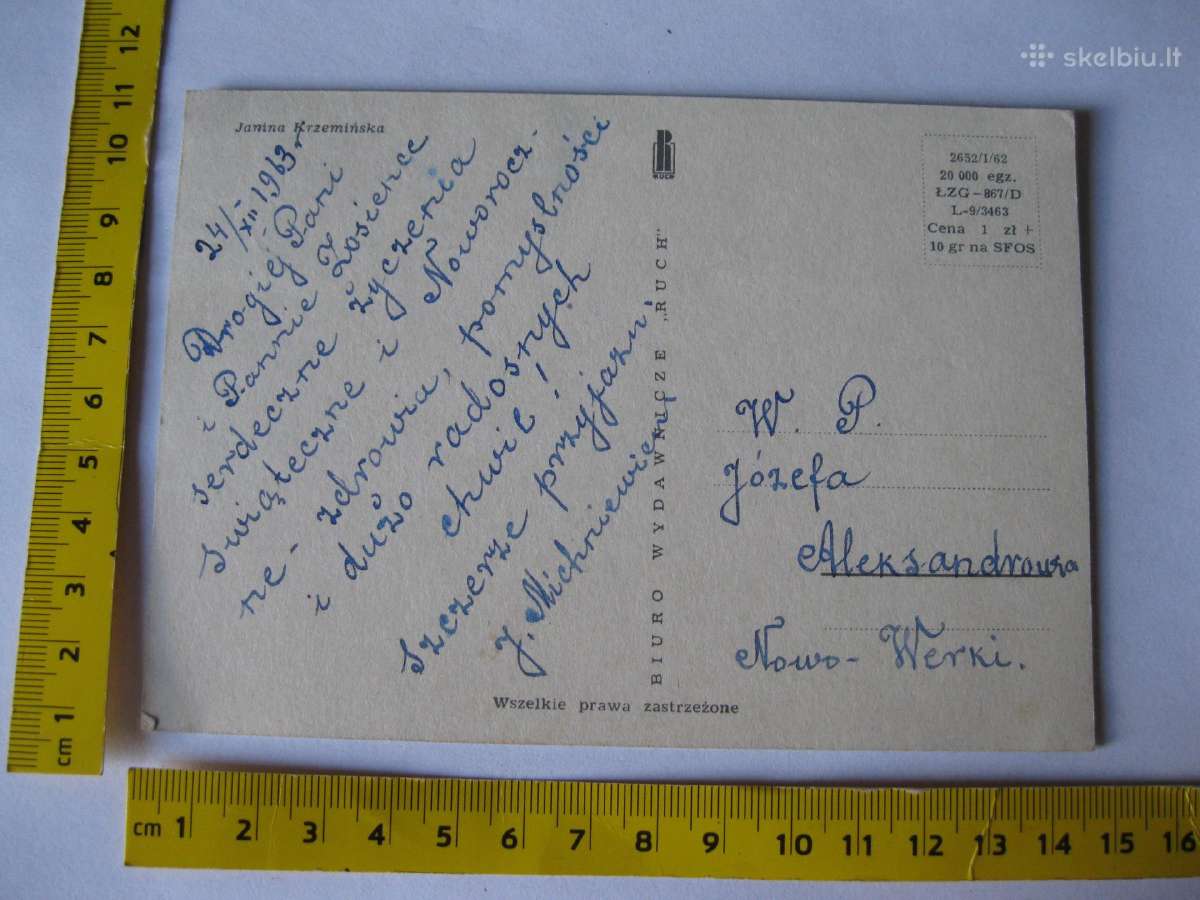 skelbiu.lt
Janina Krzemińska
24/XII 1963 r
Drogiej Pani
i Pannie Zosience
serdeczne życzenia
świąteczne i Noworocz-
ne - zdrowia, pomyslności
i dużo radosnych
chwil!
szczerze przyjaźni
J. Michniewicz
RUCH
BIURO WYDAWNICZE „RUCH"
2652/I/62
20 000 egz.
ŁZG - 867/D
L-9/3463
Cena 1 zł +
10 gr na SFOS
W. P.
Józefa
Aleksandrowna
Nowo- Werki.
Wszelkie prawa zastrzeżone
cm 1 2 3 4 5 6 7 8 9 10 11 12
cm 1 2 3 4 5 6 7 8 9 10 11 12 13 14 15 16